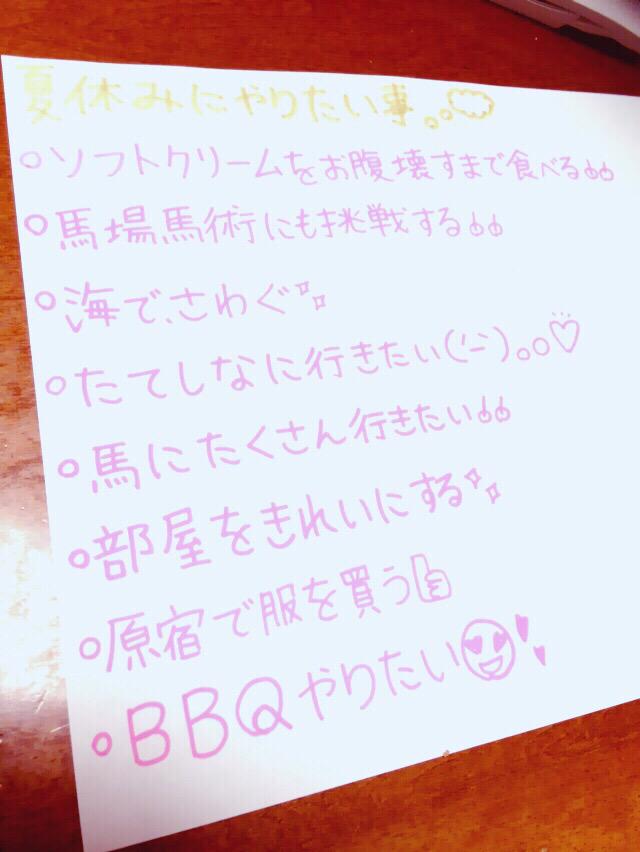 夏休みにやりたい事。
○ソフトクリームをお腹壊すまで食べる
○馬場馬術にも挑戦する
○海で、さわぐ
○たてしなに行きたい(´ー`)。○♡
○馬にたくさん行きたい
○部屋をきれいにする
○原宿で服を買う
○BBQやりたい